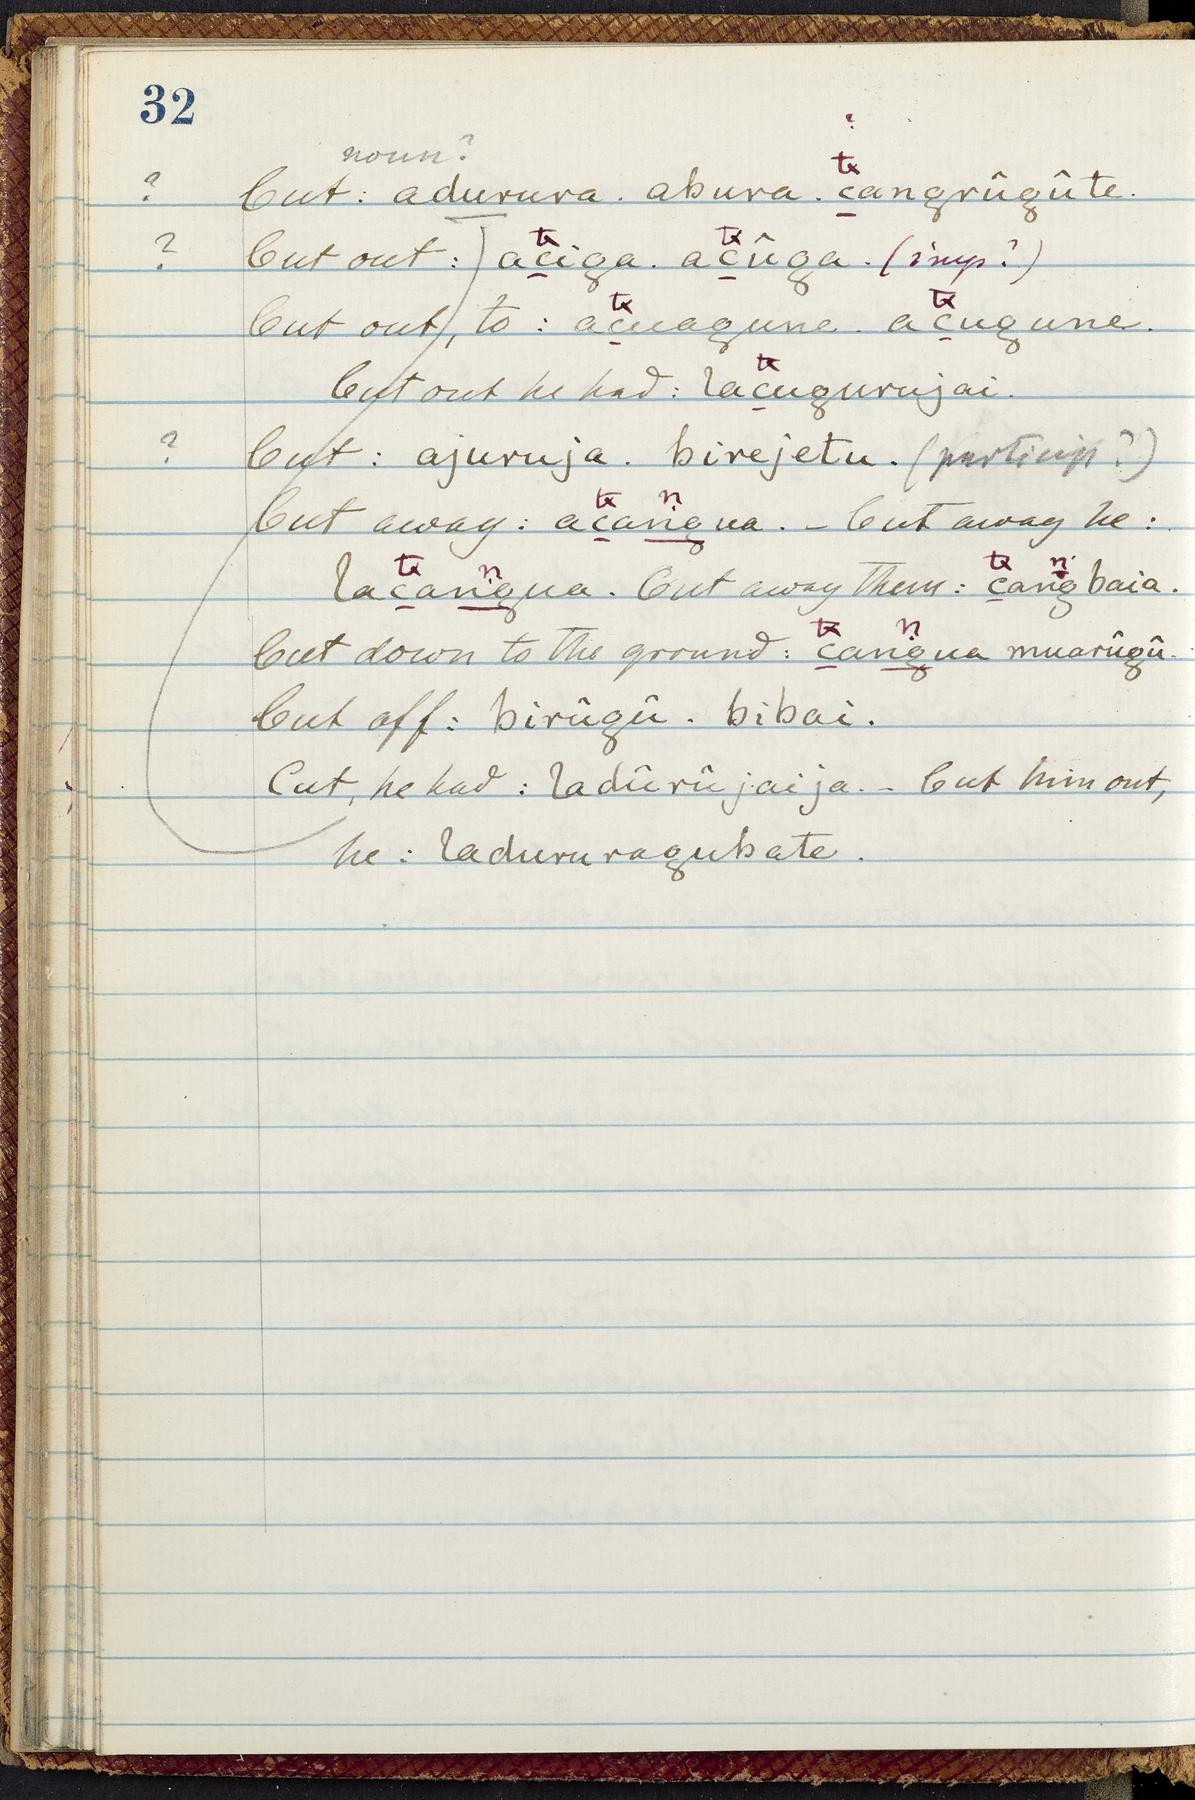 32
noun?
?
tx
? Cut: adurura. abura. cangrûgûte.
tx tx
? Cut out: aciga. acûga. (imp?)
tx tx
Cut out, to: acuagune. acugune.
tx
Cut out he had: lacugurujai.
? Cut: ajuruja. birejetu. (particip?)
tx ṅ
Cut away: acangua. - Cut away he:
tx ṅ tx ṅ
lacangua. Cut away them: cangbaia.
tx ṅ
Cut down to the ground: cangua muarûgû.
Cut off: birûgû. bibai.
Cut, he had: ladûrûjaija. - Cut him out,
he: ladururagubate.